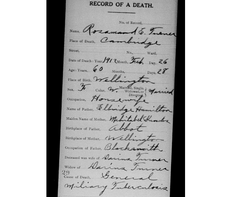 RECORD OF A DEATH.
No. of Record,
Name, Rosamond E Turner
Place of Death, Cambridge
Street, No. Ward,
Date of Death: Year, 1919 Month, Feb. Day, 26
Age: Years, 60 Months, Days, 28
Place of Birth, Wellington
Sex, F Color, W. Married
Occupation, Housewife
Name of Father, Elbridge Hamilton
Maiden Name of Mother, Mehitabel
Birthplace of Father, Abbot
Birthplace of Mother, Wellington
Occupation of Father, Blacksmith
Deceased was wife of Turner
Widow of Turner
Cause of Death, General
Miliary Tuberculosis